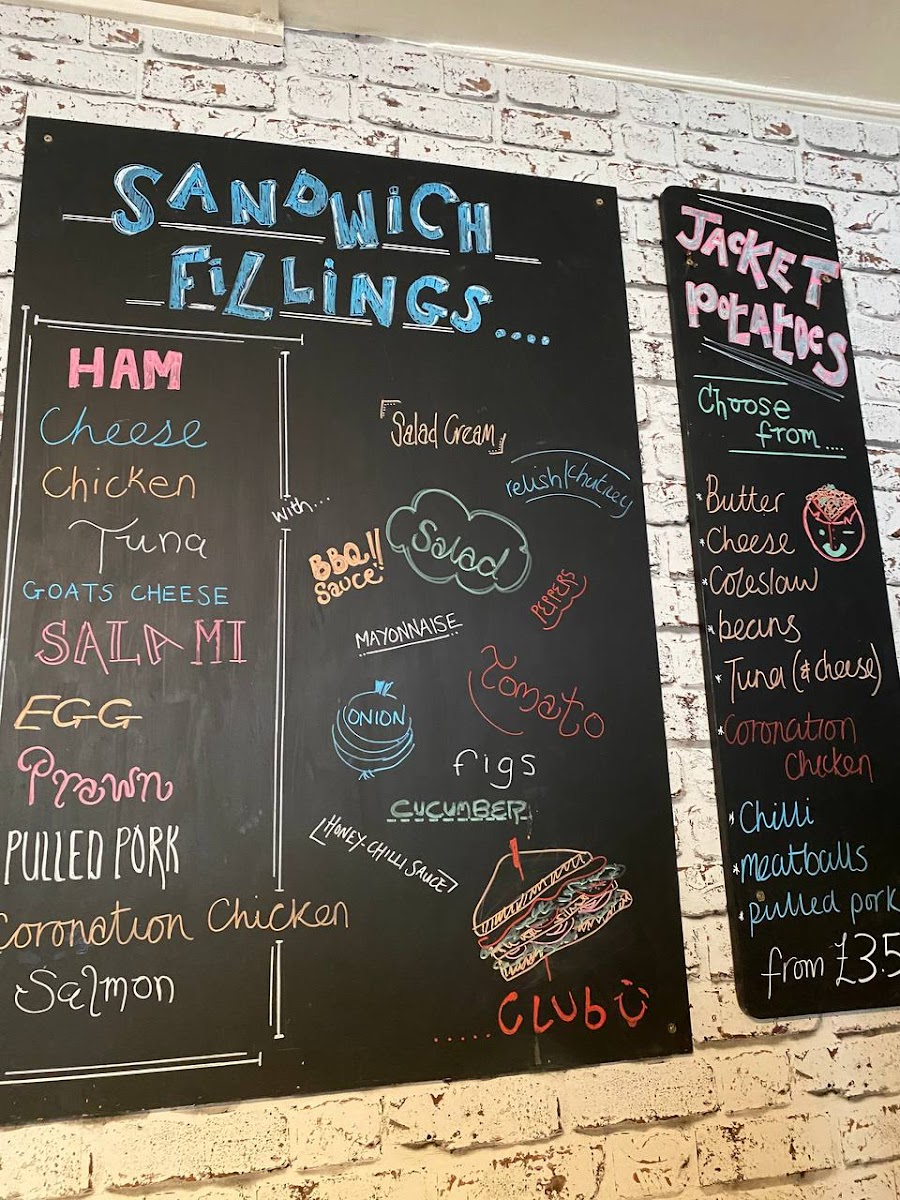 SANDWiCH
FiLLiNGS....
HAM
Cheese
Chicken
Tuna
GOATS CHEESE
SALAMI
EGG
Prawn
PULLED PORK
Coronation Chicken
Salmon
with...
Salad Cream
relish/chutney
Salad
BBQ!!
Sauce
PEPPERS
MAYONNAISE
Tomato
ONION
figs
CUCUMBER
HONEY-CHILLI SAUCE
.....CLUB
JACKET
POtAtOES
Choose
from....
*Butter
*Cheese
*Coleslaw
*beans
*Tuna (& cheese)
*Coronation
Chicken
*Chilli
*meatballs
*pulled pork
from £3.5